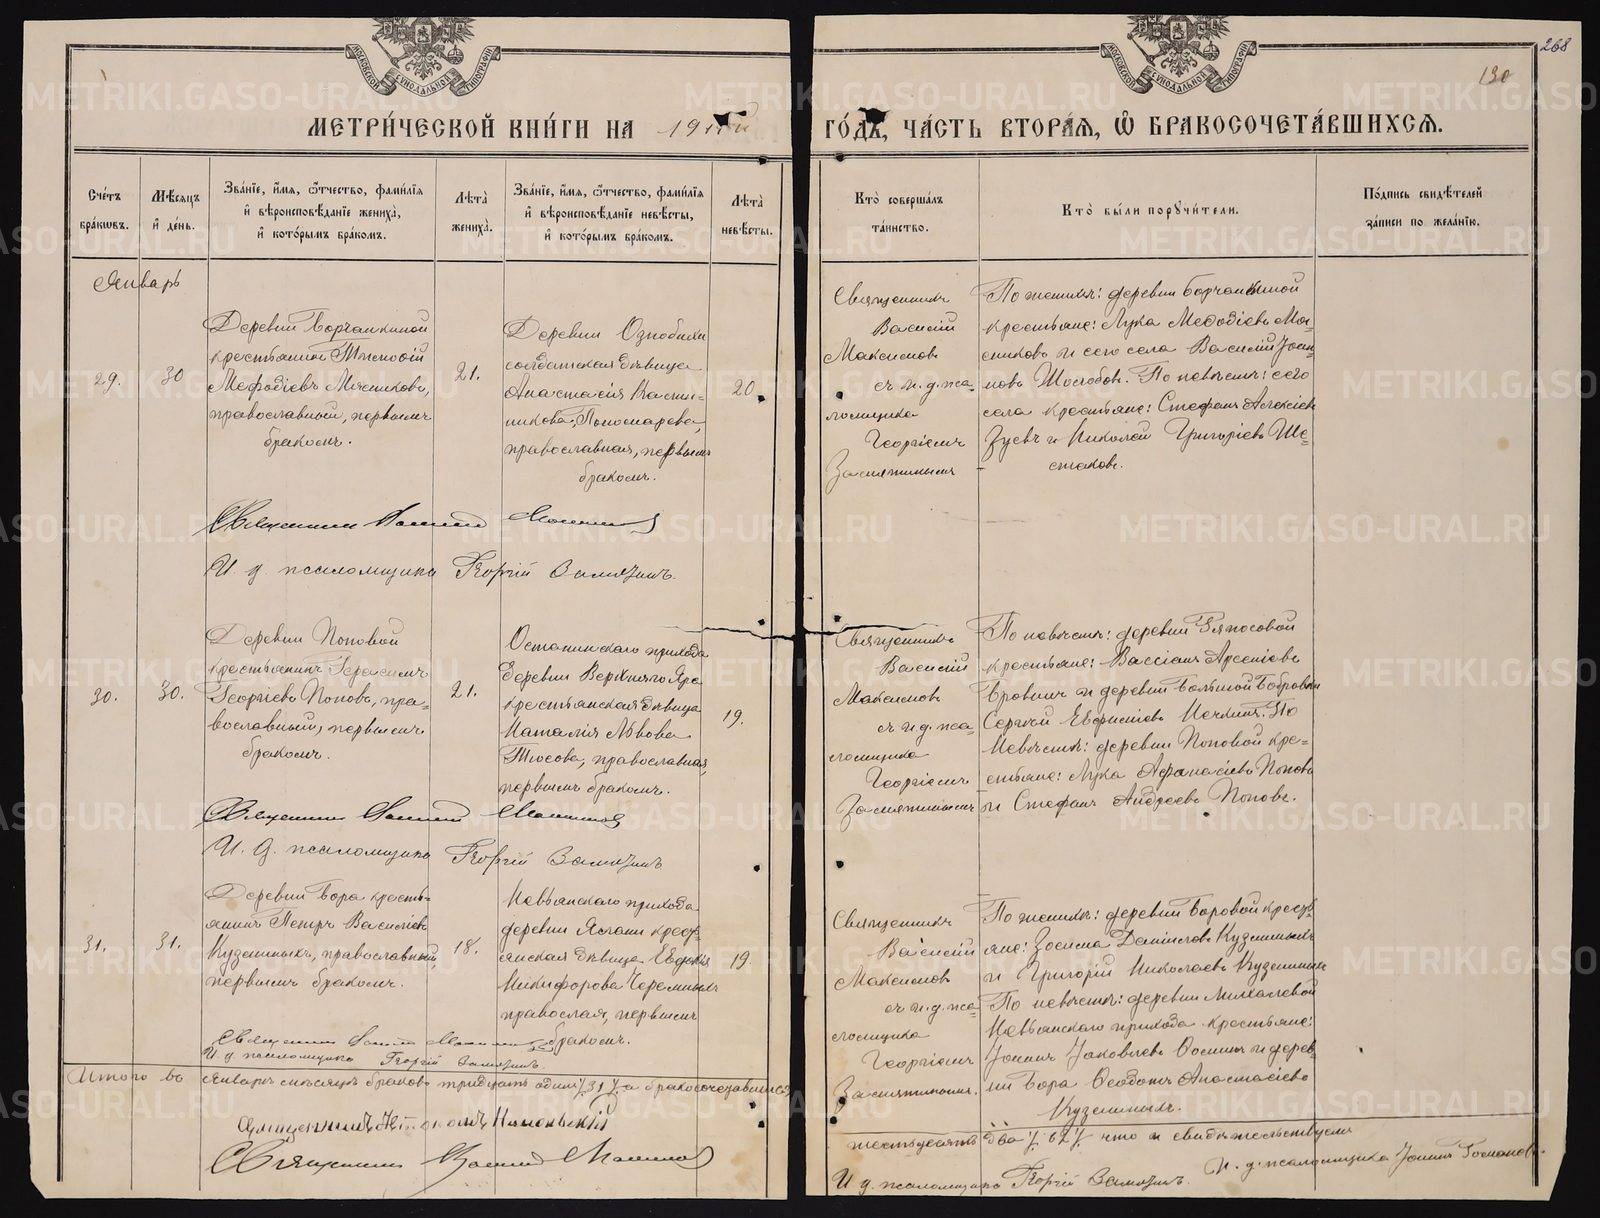 МЕТРИ́ЧЕСКОЙ КНИ́ГИ НА
ГО́ДЪ, ЧА́СТЬ ВТОРА́Я, Ѡ҆ БРАКОСОЧЕТА́ВШИХСЯ.
268
130
МОСКОВСКОЙ СѴНОДАЛЬНОЙ ТИПОГРАФІИ
МОСКОВСКОЙ СѴНОДАЛЬНОЙ ТИПОГРАФІИ
Сче́тъ бра́кѡвъ.
Мѣ́сяцъ и҆ де́нь.
Зва́нїе, и҆́мя, ѻ҆́тчество, фами́лїя и҆ вѣроисповѣ́данїе жениха̀, и҆ кото́рымъ бра́комъ.
Лѣ́та жениха̀.
Зва́нїе, и҆́мя, ѻ҆́тчество, фами́лїя и҆ вѣроисповѣ́данїе невѣ́сты, и҆ кото́рымъ бра́комъ.
Лѣ́та невѣ́сты.
Кто̀ соверша́лъ та́инство.
Кто̀ бы́ли порꙋчи́тели.
По́дпись свидѣ́телей за́писи по жела́нїю.
Январь
29.
30
Деревни
крестьянинъ
Мефодіевъ Мясниковъ,
православный, первымъ
бракомъ.
21.
Деревни Ознобихи
солдатская дѣвица
Анастасія
Пономарева,
православная, первымъ
бракомъ.
20
Священникъ
Василій
Максимовъ
съ и. д. пса-
ломщика
Георгіемъ
Замятинымъ
По женихѣ: деревни
крестьяне: Лука Мефодіевъ Мя-
сниковъ и сего села Василій Іоан-
новъ По невѣстѣ: сего
села крестьяне: Стефанъ Алексіевъ
Зуевъ и Николай Григоріевъ Ше-
стаковъ.
Священникъ Василій Максимовъ
И. д. псаломщика Георгій Замятинъ.
30.
30.
Деревни Поповой
крестьянинъ Герасимъ
Георгіевъ Поповъ, пра-
вославный, первымъ
бракомъ.
21.
Останинскаго прихода
деревни Верхняго Яра
крестьянская дѣвица
Наталія Львова
православная,
первымъ бракомъ.
19.
Священникъ
Василій
Максимовъ
съ и. д. пса-
ломщика
Георгіемъ
Замятинымъ
По невѣстѣ: деревни
крестьяне: Вассіанъ Арсеніевъ
и деревни Большой Бобровки
Сергій
невѣстѣ: деревни Поповой кре-
стьяне: Лука Афанасіевъ Поповъ
и Стефанъ Андреевъ Поповъ.
Священникъ Василій Максимовъ
И. д. псаломщика Георгій Замятинъ
31.
31.
Деревни Бора кресть-
янинъ Петръ Василіевъ
Куземиныхъ, православный,
первымъ бракомъ.
18.
Невьянскаго прихода
деревни Ясашн крест-
янская дѣвица Евдокія
Никифорова Черемныхъ
православная, первымъ
бракомъ.
19
Священникъ
Василій
Максимовъ
съ и. д. пса-
ломщика
Георгіемъ
Замятинымъ.
По женихѣ: деревни Боровой крест-
яне: Зосима Даниловъ Куземиныхъ
и Григорій Николаевъ Куземиныхъ
По невѣстѣ: деревни Михалевой
Невьянскаго прихода крестьяне:
Іоаннъ Іаковлевъ и дерев-
ни Бора Ѳеодотъ Анастасіевъ
Куземиныхъ.
Священникъ Василій Максимовъ
И. д. псаломщика Георгій Замятинъ.
Итого въ январѣ мѣсяцѣ браковъ тридцать одинъ /31/ а бракосочетавшихся
шестьдесятъ два /62/ что и свидѣтельствуемъ
Священникъ
Священникъ Василій Максимовъ
И. д. псаломщика Георгій Замятинъ.
И. д. псаломщика Іоаннъ
METRIKI.GASO-URAL.RU